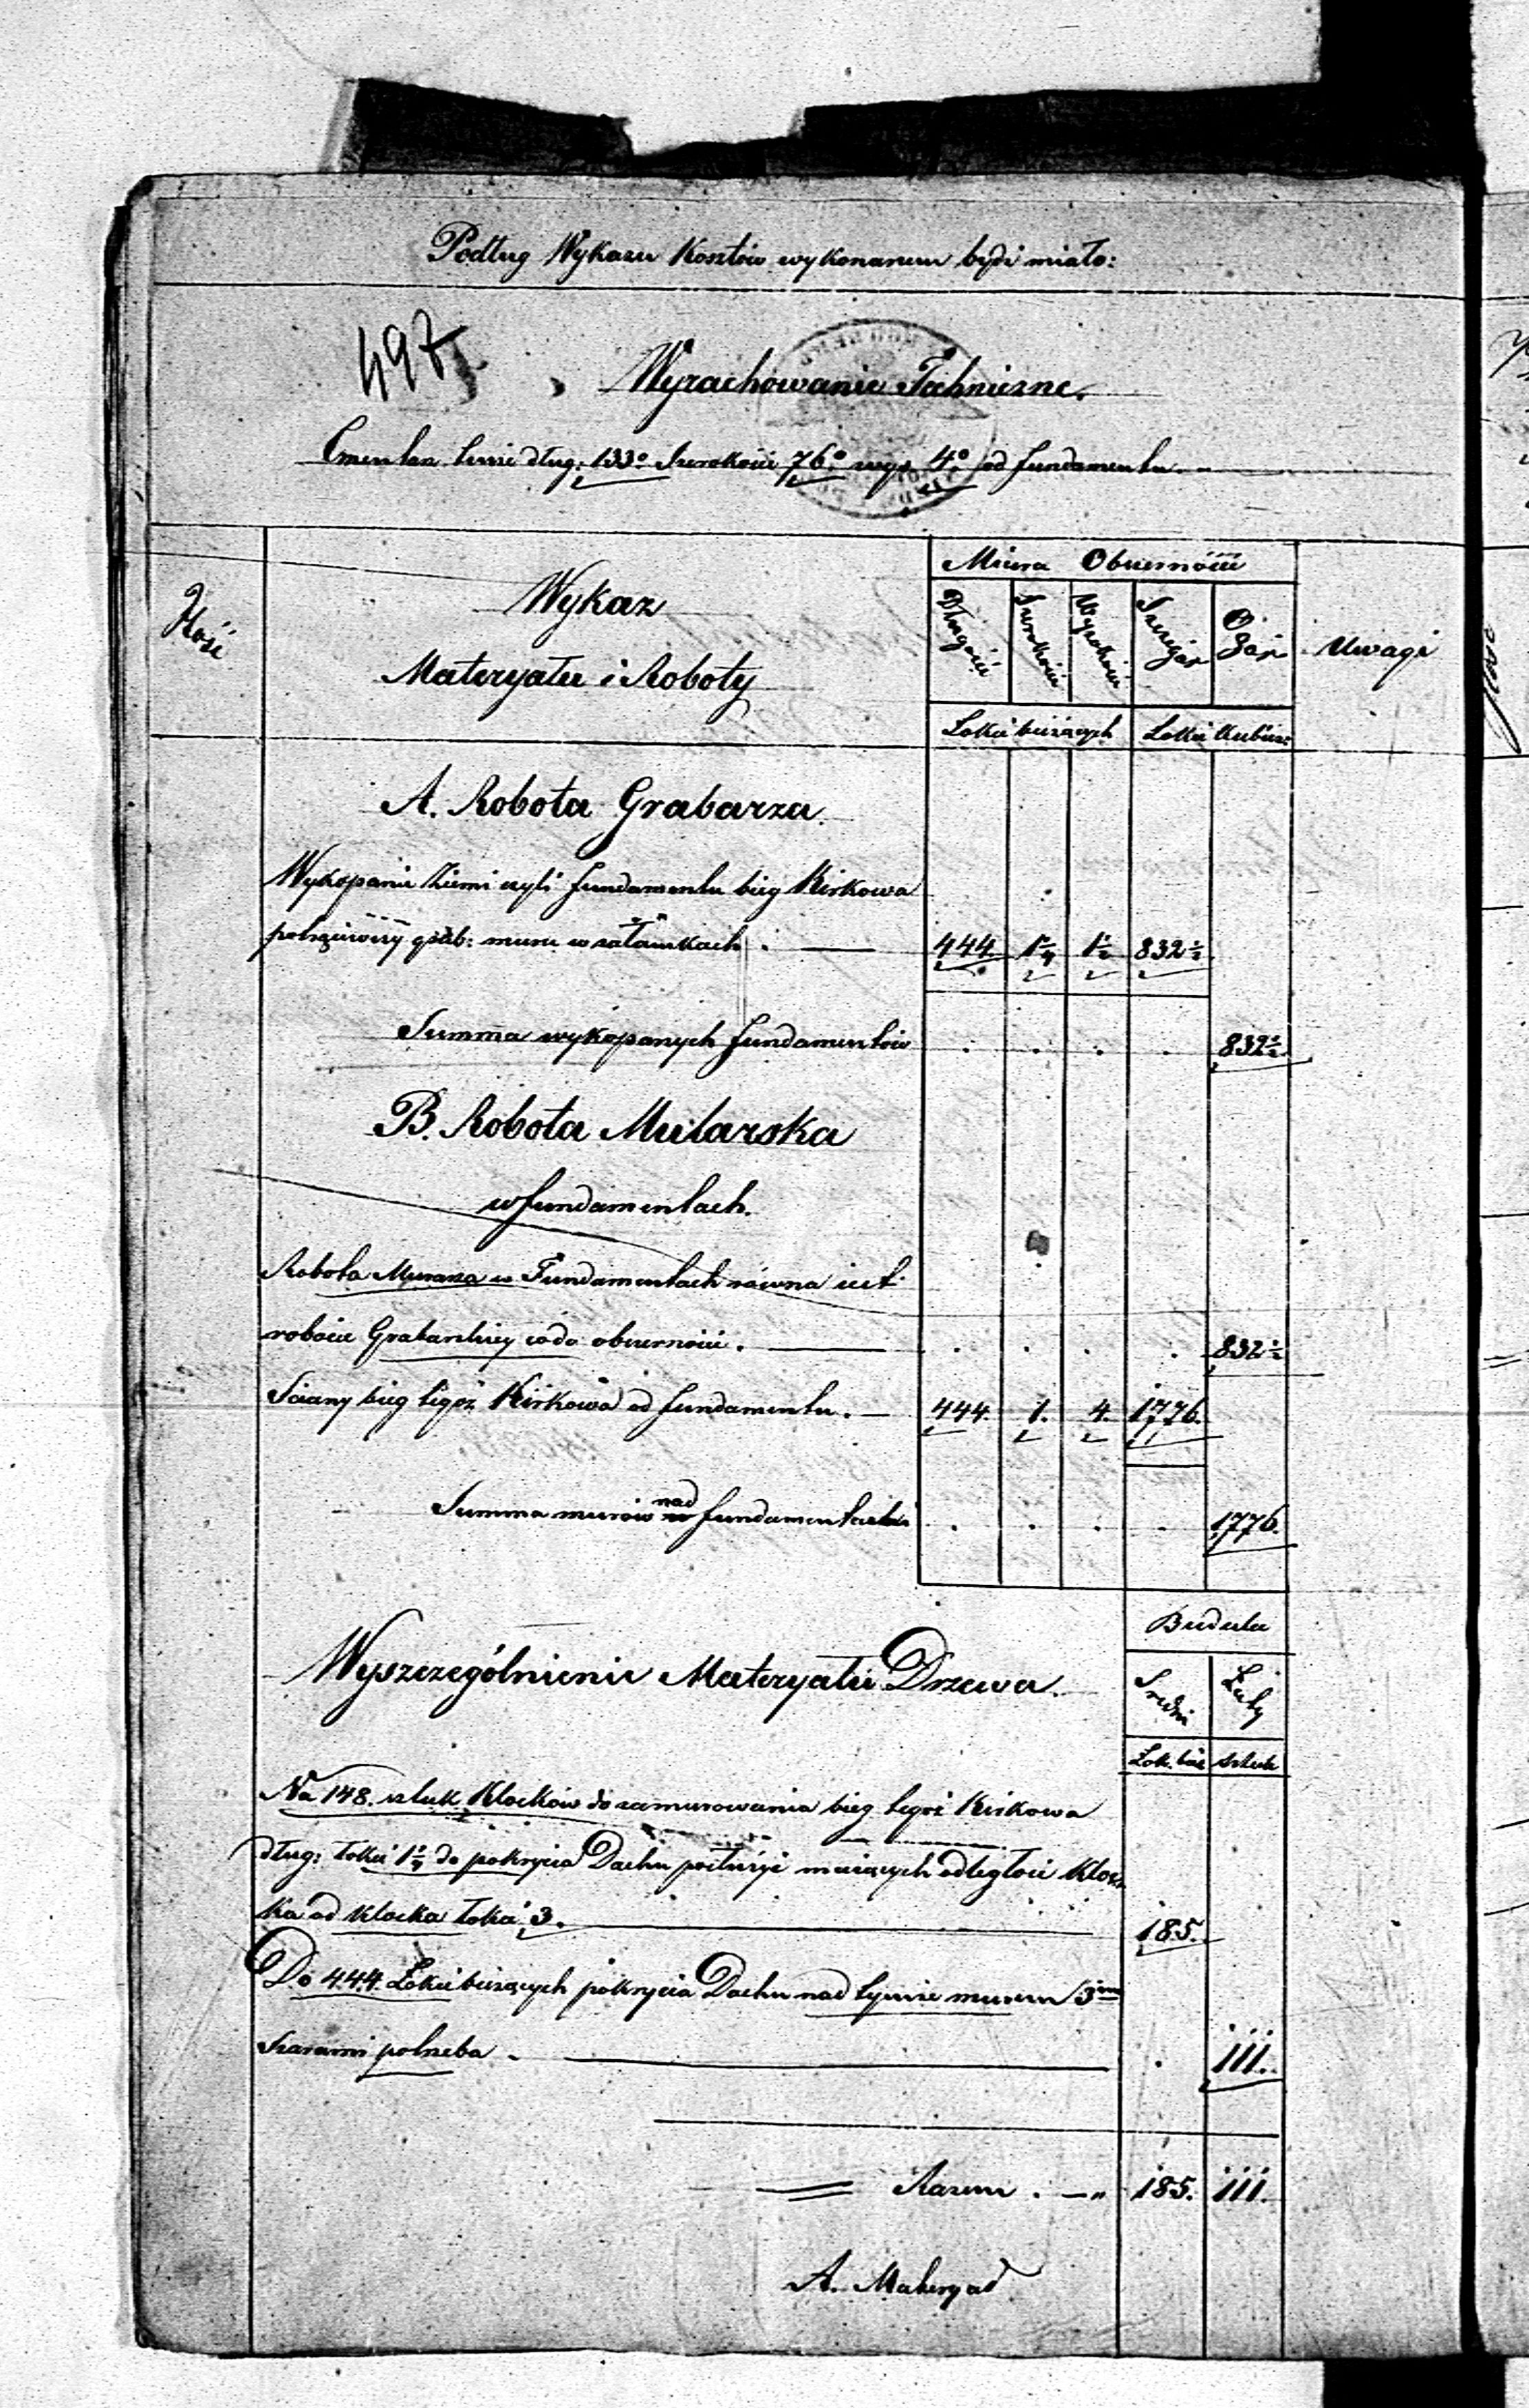 Podług Wykazu Kosztów wykonanem być miało:
497
Wyrachowanie Techniczne.
Cmentarz długi 133° Szerokości 76° wys. 4° od fundamentu
Ilość
Wykaz
Materyału i Roboty
Miara Obiętości
Długość
Szerokość
Wysokość
Szczegół
Ogół
Uwagi
Łokci bieżących
Łokci kubicz:
A. Robota Grabarza.
Wykopanie Ziemi czyli fundamentu bieg Kirkowa
grub: muru w załamkach . 444. 1¼ 1½ 832½
Summa wykopanych fundamentów . . . . 832½
B. Robota Mularska
w fundamentach.
Robota Murarza w Fundamentach równa iest
robocie Grabarskiey co do obierności. . . . . 832½
Sciany bieg tegoż Kirkowa od fundamentu. 444. 1. 4. 1776.
Summa murów nad fundamentami . . . . 1776.
Budulcu
Wyszczególnienie Materyału Drzewa.
Sredni
Łaty
Łok. bież
sztuk
Na 148. sztuk Klocków do zamurowania bieg tegoż Kirkowa
dług: łokci 1¼ do pokrycia Dachu maiących odległość Kloc
ka od klocka łokci 3. 185.
Do 444 Łokci bieżących pokrycia Dachu nad tymże murem 3ma
Szarami potrzeba . 111.
Razem . 185. 111.
A. Materyał